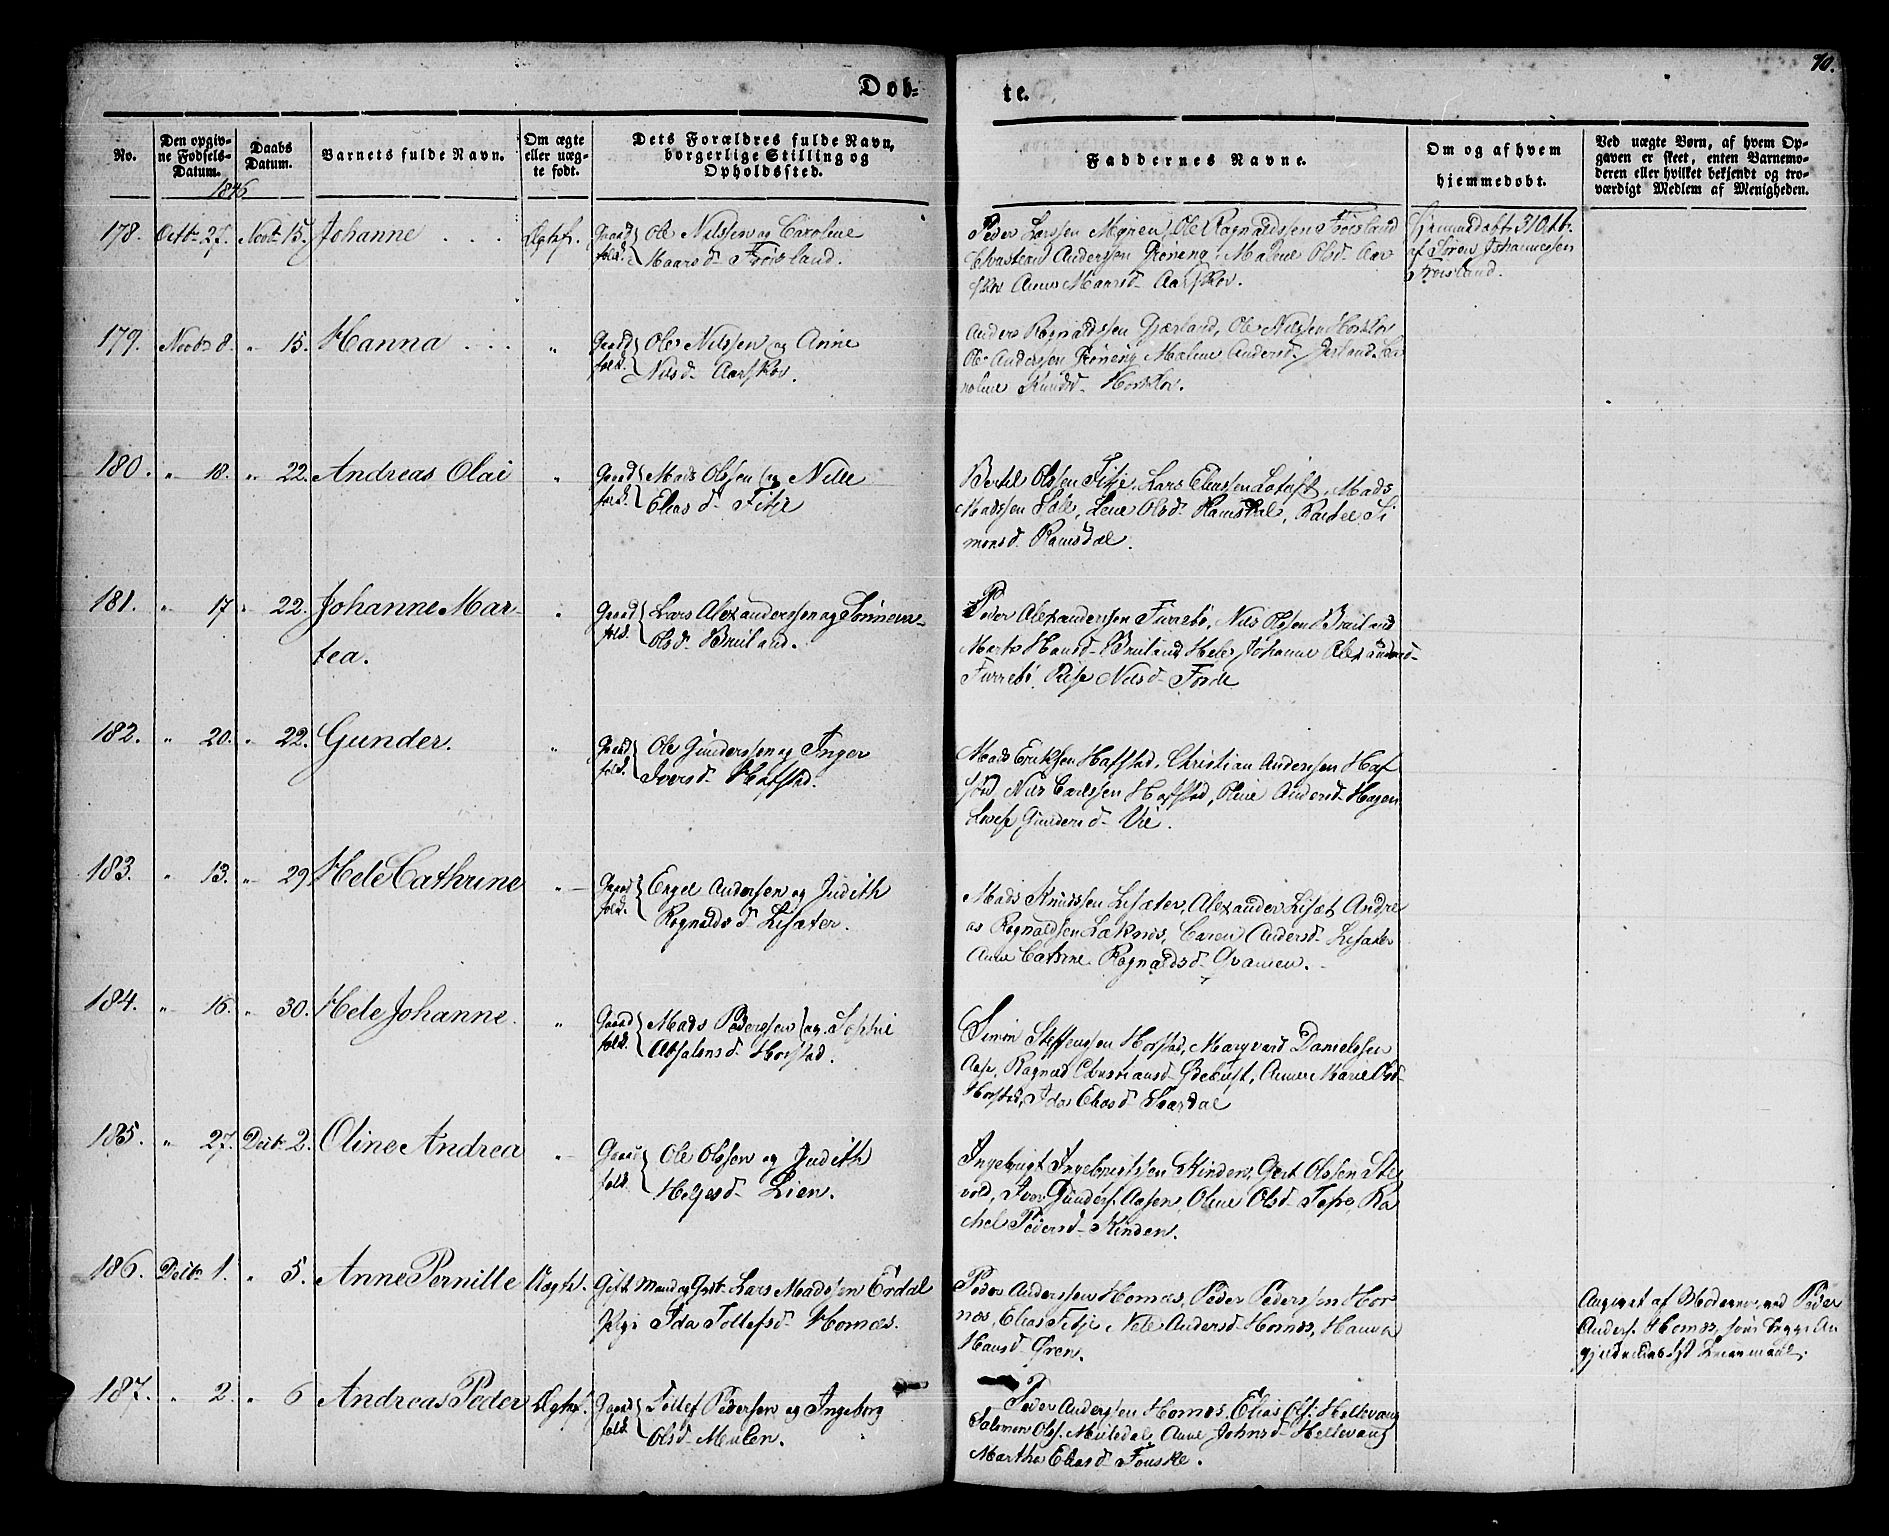 90.
Døb-
te.
No.
Den opgiv-
ne Fødsels-
Datum.
Daabs
Datum.
Barnets fulde Navn.
Om ægte
eller uæg-
te født.
Dets Forældres fulde Navn,
borgerlige Stilling og
Opholdssted.
Faddernes Navne.
Om og af hvem
hjemmedøbt.
Ved uægte Børn, af hvem Op-
gaven er skeet, enten Barnemo-
deren eller hvilket bekjendt og tro-
værdigt Medlem af Menigheden.
1846
178. Octbr 27. Novbr 15. Johanne Ægtef. Gaard
folk. Ole Nilssen og Caroline
Maarsd Frøisland.
Peder Larssen Myren, Ole Ragnaldssen Frøisland
Anderssen Grøning, Malene Olsd Aar
skov Anne Maarsd Aarskov.
Hjemmedøbt 31 Octb.
af Søren Johannessen
Frøisland.
179. Novbr 8. " 15. Hanna " Gaard
folk. Ole Nilssen og Anne
Nilsd Aarskov.
Anders Ragnaldssen Gjærland, Ole Nilssen Horsklov
Ole Anderssen Grøning Malene Andersd. Jerland Ca-
roline Knudsd Horsklov.
180. " 18. " 22. Andreas Olai " Gaard
folk. Mads Olssen og Nille
Eliasd Fitje
Bertel Olssen Fitje, Lars Eliassen Løtuft, Mads
Madssen Sole, Lene Olsd Ramsdal, Rachel Si
monsd Ramsdal.
181. " 17 " 22. Johanne Mar-
tea. " Gaard
folk. Lars Alexanderssen og Sønneve
Olsd Bruland.
Peder Alexandersen Furrebø, Nils Olssen Bruland
Marte Hansd Bruland Hele Johanne Alexandersd
Furrebø, Nilsd Førde
182. " 20. " 22. Gunder. " Gaard
folk. Ole Gunderssen og Inger
Iversd Hafstad.
Mads Erikssen Hafstad, Christian Anderssen Haf
stad, Nils Carlssen Hafstad, Oline Andersd Hagen
Gundersd Vie.
183. " 13. " 29 Hele Cathrine " Gaard
folk. Engel Andersen og Judith
Ragnaldsd Lisæter.
Mads Knudssen Lisæter, Alexander Lisæt, Andre
as Ragnaldsen Laknæs, Caren Andersd Lisæter
Anne Cathrine Ragnaldsd Qvamen.
184. " 16. " 30. Hele Johanne. " Gaard
folk. Mads Pederssen og Sophie
Absalonsd Horstad.
Simon Steffenssen Horstad, Marqvard Danielssen
Aase, Ragnæ Christiansd Anne Marie Olsd
Horstad, Ida Eliasd
185. " 27. Decbr 2. Oline Andrea " Gaard
folk. Ole Olssen og Judith
Helgesd Lien.
Ingebrigt Ingebrigtssen Kinden, Gert Olssen Ste
vold, Iver Gunders. Aasen, Oline Olsd Tefre, Ra
chel Pedersd Kinden.
186. Decbr 1. " 5. Anne Pernille Uægte. Gift Mand og Lars Madssen Erdal
Pige Ida Tollefsd Hornæs.
Peder Anderssen Hornæs, Peder Pederssen Hor
næs, Elias Fitje Nele Andersd Hornæs, Hanna
Hansd Gren.
Angivet af Moderen, ved Peder
Anders. Hornæs,
187. " 2. " 6 Andreas Peder Ægtef. Gaard
folk. Tollef Pederssen og Ingeborg
Olsd Mulen.
Peder Anderssen Hornæs, Elias Ols. Hellevang
Salomon Ols. Muledal, Anne Johnsd Hellevang
Martha Eliasd Fonske.